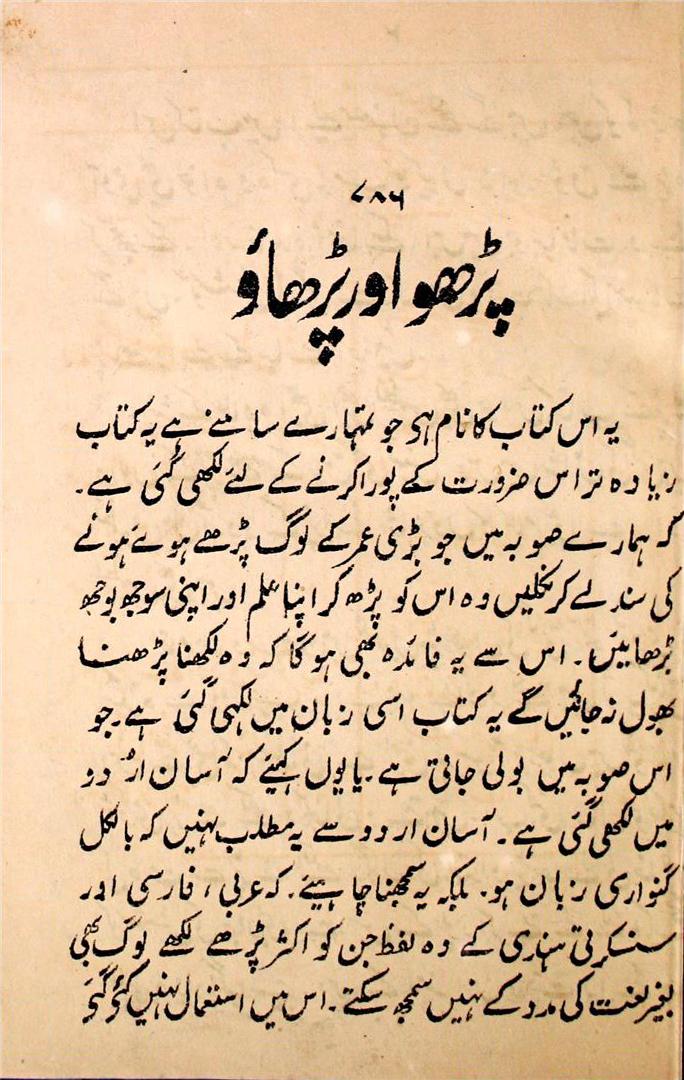 ۷۸۶
پڑھو اور پڑھاؤ
یہ اس کتاب کا نام ہی جو تمہارے سامنے ہے یہ کتاب
زیادہ تر اس ضرورت کے پورا کرنے کے لئے لکھی گئی ہے۔
کہ ہمارے صوبہ میں جو بڑی عمر کے لوگ پڑھے ہوئے ہونے
کی سند لے کر نکلیں وہ اس کو پڑھ کر اپنا علم اور اپنی سوجھ بوجھ
بڑھائیں۔ اس سے یہ فائدہ بھی ہوگا کہ وہ لکھنا پڑھنا
بھول نہ جائیں گے یہ کتاب اسی زبان میں لکہی گئی ہے۔ جو
اس صوبہ میں بولی جاتی ہے۔ یا یوں کہیئے کہ آسان اُردو
میں لکھی گئی ہے۔ آسان اردو سے یہ مطلب نہیں کہ بالکل
گنواری زبان ہو۔ بلکہ یہ سمجھنا چاہیئے۔ کہ عربی، فارسی اور
سنسکرتی ہندی کے وہ لفظ جن کو اکثر پڑھے لکھے لوگ بھی
بغیر لغت کی مدد کے نہیں سمجھ سکتے۔ اس میں استعمال نہیں کئے گئے